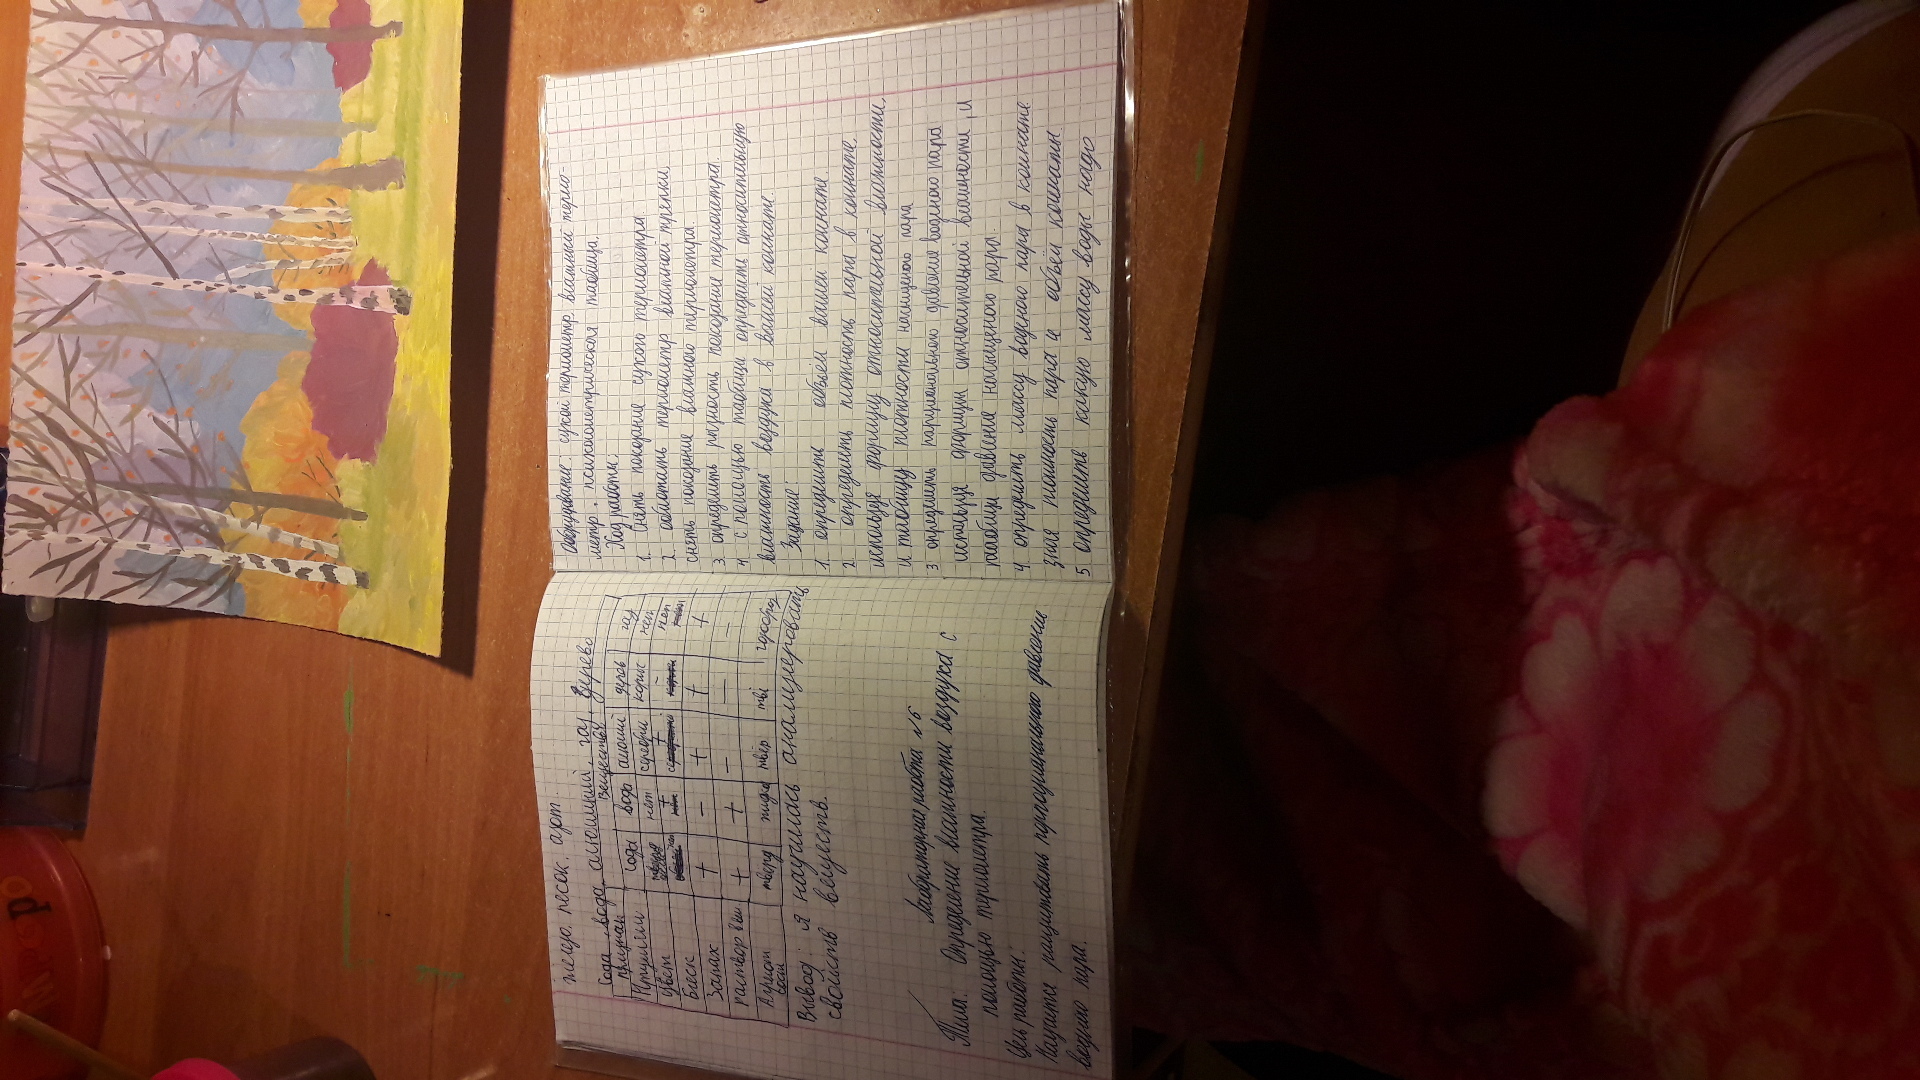 тело, песок, азот.
Сода, вода, алюминий, газ, дерево
признак веществ
Крупицы сода вода алюмин дерев газ
цвет нет серебри корич нет
Блеск + − + + +
Запах
раствор + + − − −
Агрегат сост тверд жидк твёр тв газообраз
Вывод: я научилась анализировать
свойств веществ.
Лабораторная работа №5
Тема: Определение влажности воздуха с
помощью термометра.
Цель работы:
Научится рассчитывать парциального давление
водяного пара.
Оборудование: сухой термометр, влажный термо-
метр, психометрическая таблица.
Ход работы:
1. Снять показание сухого термометра
2. обмотать термометр влажной тряпки
снять показание влажного термометра.
3 определить разность показании термометра.
4 с помощью таблици определить относительную
влажность воздуха в вашей комнате.
Задание:
1. определить объём вашей комнате.
2. определить плотность пара в комнате.
используя формулу относительной влажности,
и таблицу плотности насыщеного пара
3 определить парциального давление водяного пара
используя формулы относительной влажности, и
таблици давление насыщеного пара.
4 определить массу водяного пара в комнате
зная плотность пара и объём комнаты
5 определить какую массу воды надо